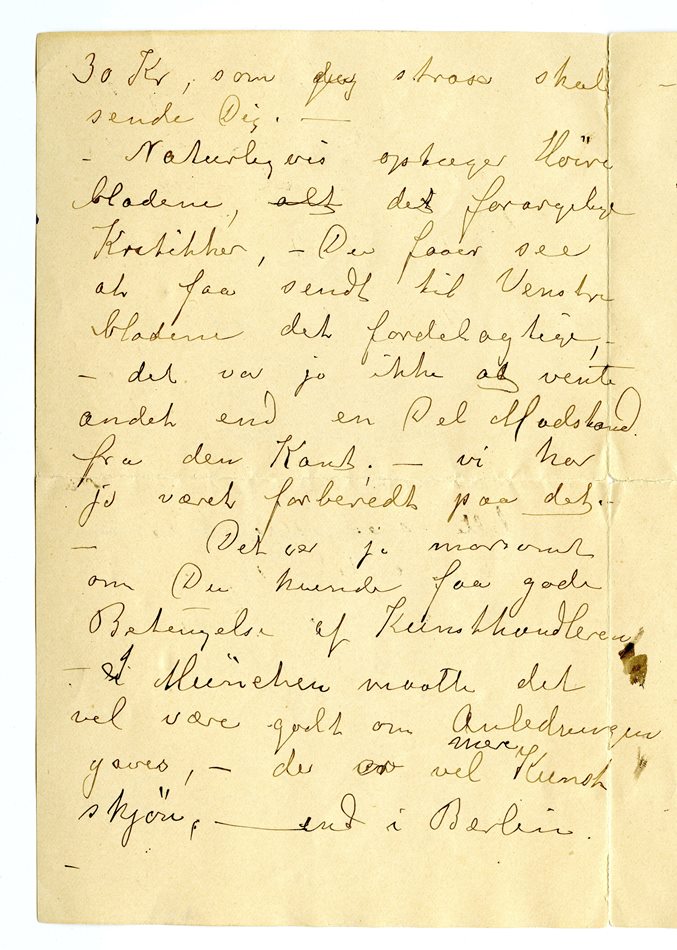 30 Kr, som jeg strax skal –
sende Dig. —
– Naturligvis optager Høire
bladene, alt det forargelige
Kritikker, – Du faaer see
at faa sendt til Venstre
bladene det fordelagtige, –
– det va jo ikke at vente
andet end en Del Modstand
fra den Kant, – vi har
jo været forberedt paa det. –
– Det er jo morsomt
om Du kunde faa gode
Betingelse af Kunsthandleren
– I München maatte det
vel være godt om Anledningen
gaves, – der er vel mere Kunst
skjøn, — end i Berlin.
–